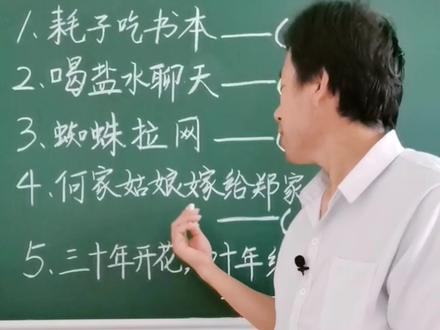 1、耗子吃书本——(
2、喝盐水聊天——
3、蜘蛛拉网——(
4、何家姑娘嫁给郑家
——(
5、三十年开花，十年